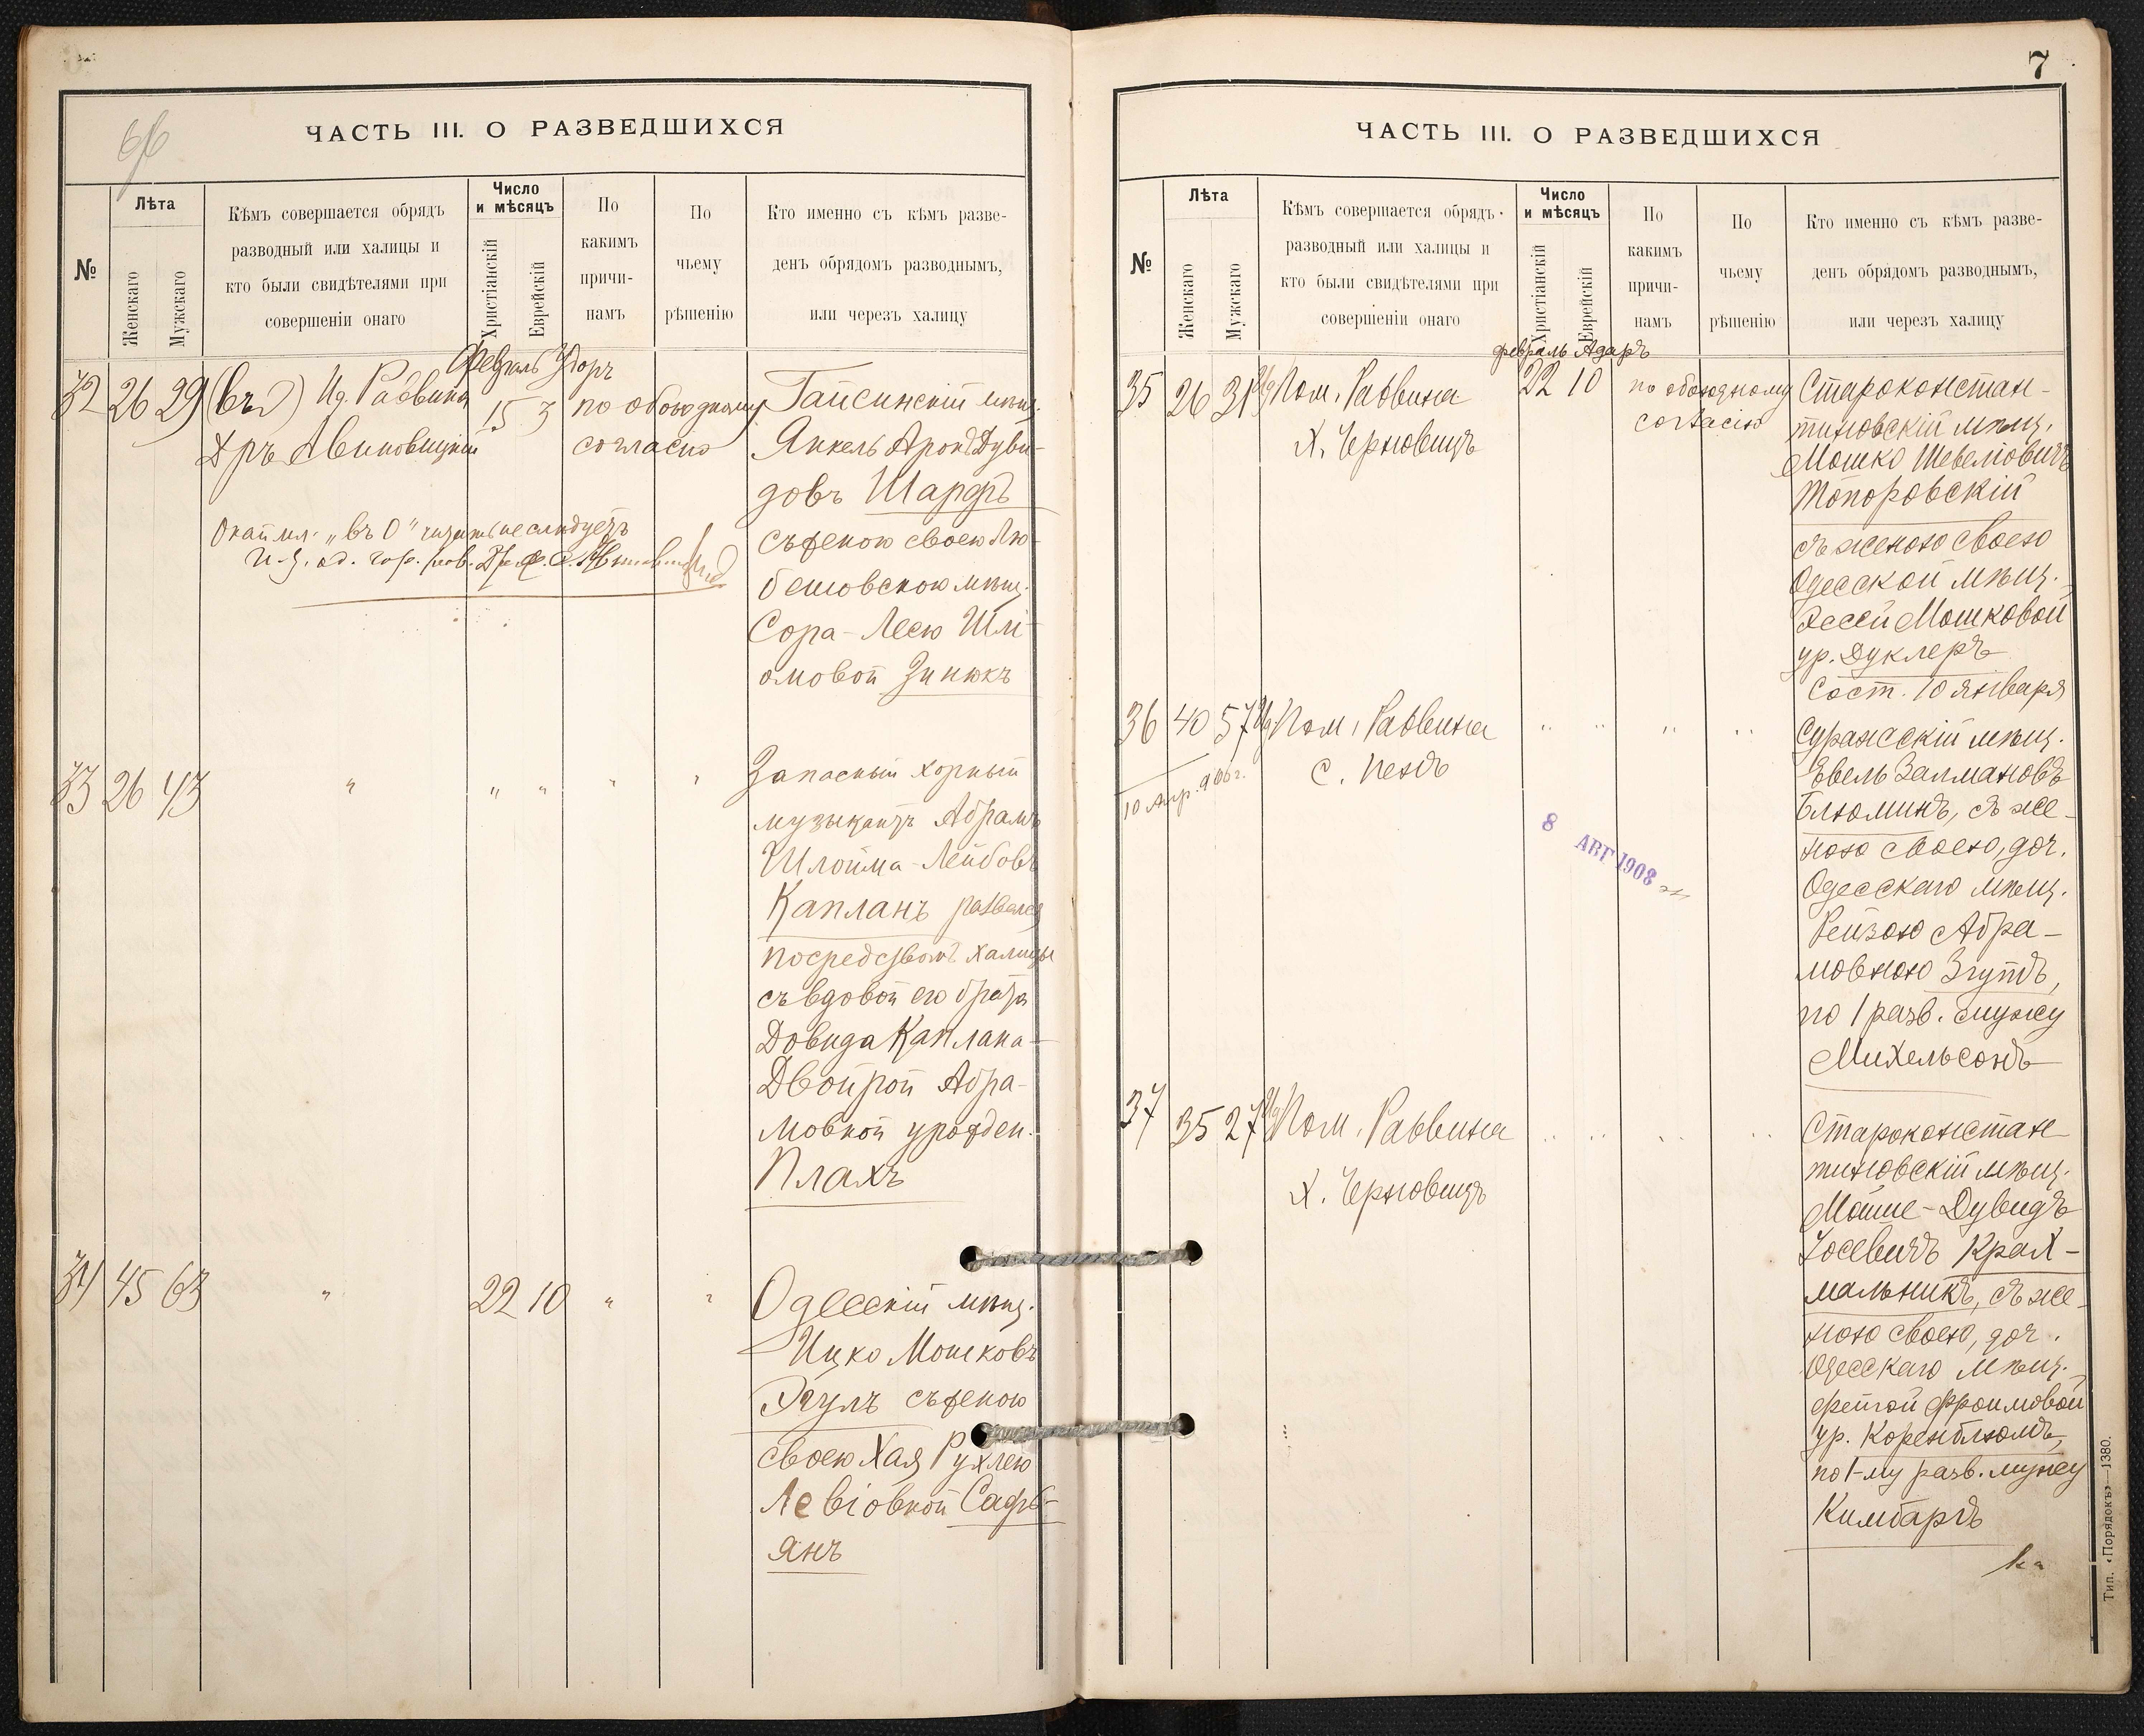 ЧАСТЬ III. О РАЗВЕДШИХСЯ
№
Лѣта
Женскаго
Мужскаго
Кѣмъ совершается обрядъ
разводный или халицы и
кто были свидѣтелями при
совершеніи онаго
Число
и мѣсяцъ
Христіанскій
Еврейскій
По
какимъ
причи-
намъ
По
чьему
рѣшенію
Кто именно съ кѣмъ разве-
денъ обрядомъ разводнымъ,
или черезъ халицу
Февраль Удоръ
32 26 29 Ид. Раввина
Дръ Авиновицкій
15 3
по обоюдному
согласію
Гайсинскій мѣщ.
Янкель Аронъ Дуви-
довъ Шарфъ
съ женою своею Лю-
бешовскою мѣщ.
Сора-Лею Шлі-
омовой Зинюкъ
"въ О" читать не слѣдуетъ
33 26 43 " " " " "
Запасный хорный
музыкантъ Абрамъ
Шлойма-Лейбовъ
Капланъ развелся
посредствомъ халицы
съ вдовой его брата
Довида Каплана
Двойрой Абра-
мовной урожден.
Плахъ
34 45 63 " 22 10 " "
Одесскій мѣщ.
Ицко Мошковъ
съ женою
своею Хая Рухлею
Левіовной Сафь-
янъ
7
ЧАСТЬ III. О РАЗВЕДШИХСЯ
№
Лѣта
Женскаго
Мужскаго
Кѣмъ совершается обрядъ
разводный или халицы и
кто были свидѣтелями при
совершеніи онаго
Число
и мѣсяцъ
Христіанскій
Еврейскій
По
какимъ
причи-
намъ
По
чьему
рѣшенію
Кто именно съ кѣмъ разве-
денъ обрядомъ разводнымъ,
или черезъ халицу
февраль Адаръ
35 26 31 Ид Пом. Раввина
Х. Черновицъ
22 10
по обоюдному
согласію
Староконстан-
тиновскій мѣщ.
Мошко Шевеліовичъ
Топоровскій
съ женою своею
Одесской мѣщ.
Хессей Мошковой
ур. Дуклеръ
Сост. 10 января
36 40 57 Ид Пом. Раввина
С. Пенъ
" " " "
10 Апр. 906 г.
8 АВГ 1908
Суражскій мѣщ.
Евель Залмановъ
Блюминъ, съ же-
ною своею, доч.
Одесскаго мѣщ.
Рейзою Абра-
мовною Згутъ,
по 1 разв. мужу
Михельсонъ
37 35 27 Ид Пом. Раввина
Х. Черновицъ
" " " "
Староконстан-
тиновскій мѣщ.
Мойше-Дувидъ
Іосевичъ Крах-
мальникъ, съ же-
ною своею, доч.
Одесскаго мѣщ.
Фейгой Фроимовой
ур. Коренблюмъ,
по 1-му разв. мужу
Кимбаръ
Тип. «Порядокъ»—1380.